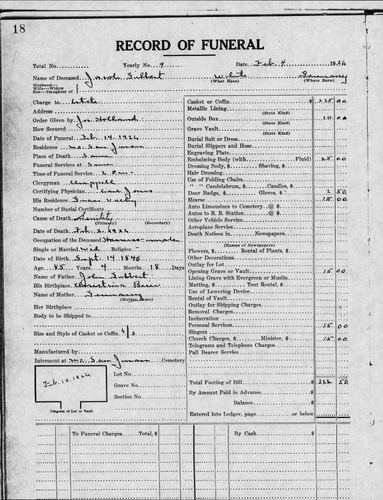 18
RECORD OF FUNERAL
Total No. Yearly No. 9 Date Feb. 4 1926
Name of Deceased Jacob Gilbert White Germany
(What Race) (Where Born)
Husband—
Wife—Widow
Son—Daughter of
Charge to Estate
Address
Order Given by Joe Holland
How Secured
Date of Funeral Feb. 14 1926
Residence
Place of Death Same
Funeral Services at Same
Time of Funeral Service 2 P.m.
Clergyman Chappell
Certifying Physician
His Residence
Number of Burial Certificate
Cause of Death Senility
(Primary) (Secondary)
Date of Death Feb. 2 1926
Occupation of the Deceased
Single or Married Wid Religion
Date of Birth Sept. 14 1840
Age 85 Years 4 Months 18 Days
Name of Father John Gilbert
His Birthplace
Name of Mother Germany
(Maiden Name)
Her Birthplace
Body to be Shipped to
Size and Style of Casket or Coffin
Manufactured by
Interment at Cemetery
Lot No.
Grave No.
Section No.
Feb. 10, 1926
Diagram of Lot or Vault
Casket or Coffin $ 225 00
Metallic Lining
(State Kind)
Outside Box 10 00
(State Kind)
Grave Vault
(State Kind)
Burial Suit or Dress
Burial Slippers and Hose
Engraving Plate
Embalming Body (with Fluid) 25 00
Dressing Body, $ Shaving, $
Hair Dressing
Use of Folding Chairs
" " Candelabrum, $ Candles, $
Door Badge, $ Gloves, $ 2 50
Hearse 15 00
Auto Limousines to Cemetery @ $
Autos to R. R. Station @ $
Aeroplane Service
Death Notices in Newspapers
(Names of Newspapers)
Flowers, $ Rental of Plants, $
Other Decorations
Outlay for Lot
Opening Grave or Vault 15 00
Lining Grave with Evergreen or Muslin
Matting, $ Tent Rental, $
Use of Lowering Device
Rental of Vault
Outlay for Shipping Charges
Removal Charges
Incineration
Personal Services 15 00
Singers
Church Charges, $ Minister, $ 15 00
Telegrams and Telephone Charges
Pall Bearer Service
Total Footing of Bill $
By Amount Paid in Advance $
Balance $
Entered into Ledger, page or below
To Funeral Charges Total, $ By Cash $